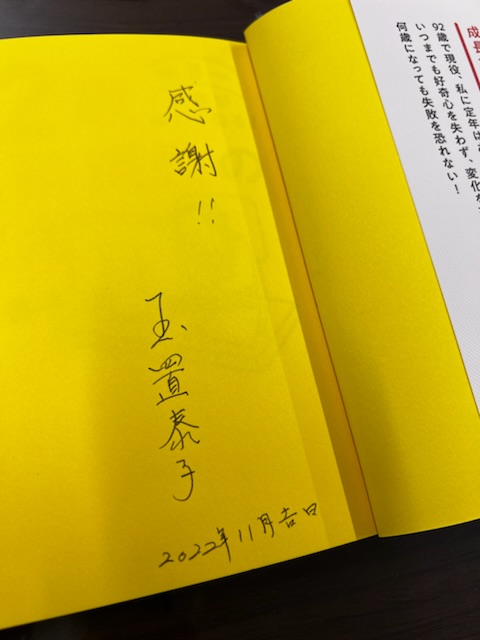 成長
92歳で現役、私に定年は
いつまでも好奇心を失わず、変化を
何歳になっても失敗を恐れない！
感謝!!
玉置泰子
2022年11月吉日